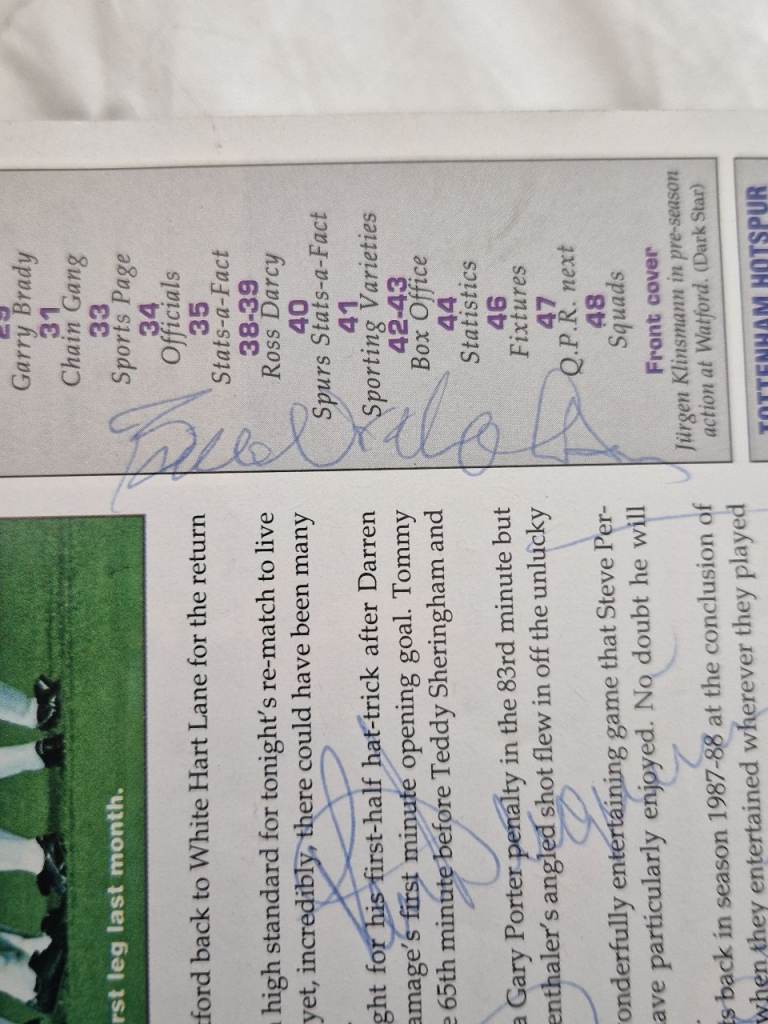 29
Garry Brady
31
Chain Gang
33
Sports Page
34
Officials
35
Stats-a-Fact
38-39
Ross Darcy
40
Spurs Stats-a-Fact
41
Sporting Varieties
42-43
Box Office
44
Statistics
46
Fixtures
47
Q.P.R. next
48
Squads
Front cover
Jürgen Klinsmann in pre-season
action at Watford. (Dark Star)
TOTTENHAM HOTSPUR
rst leg last month.
ford back to White Hart Lane for the return
high standard for tonight's re-match to live
yet, incredibly, there could have been many
ght for his first-half hat-trick after Darren
amage's first minute opening goal. Tommy
e 65th minute before Teddy Sheringham and
a Gary Porter penalty in the 83rd minute but
enthaler's angled shot flew in off the unlucky
onderfully entertaining game that Steve Per-
ave particularly enjoyed. No doubt he will
s back in season 1987-88 at the conclusion of
when they entertained wherever they played